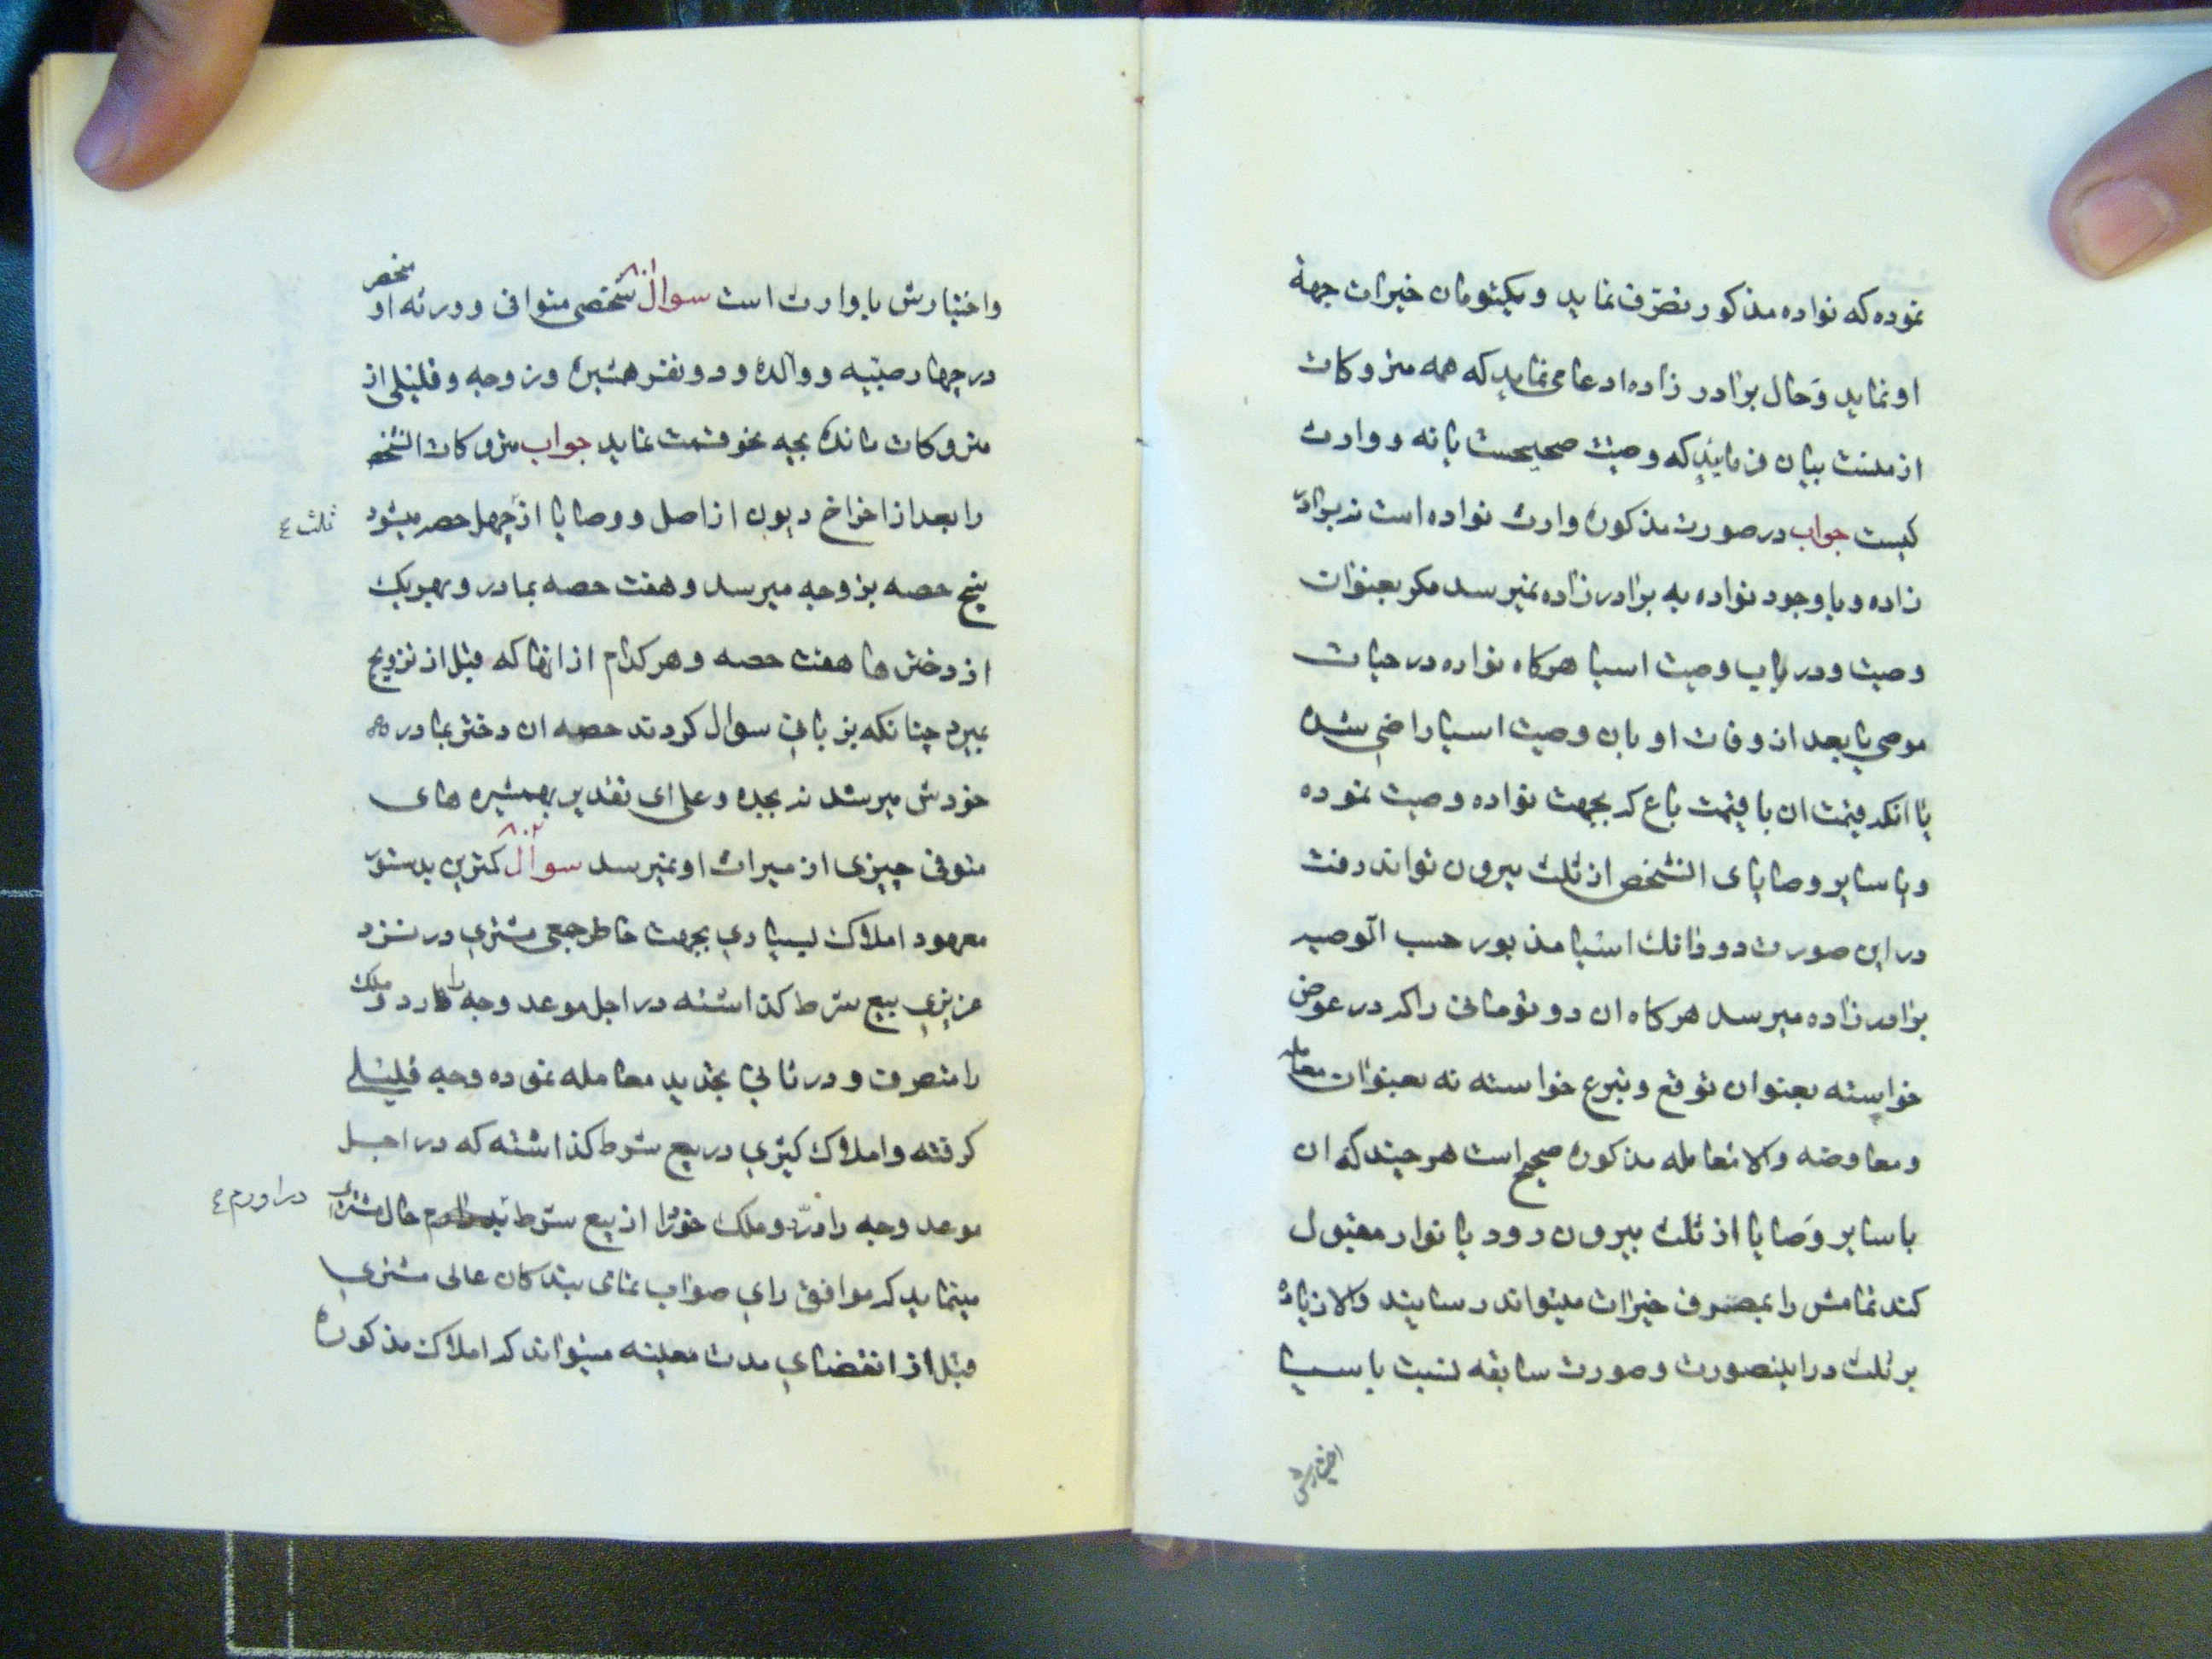 نموده که نواده مذکور تصرف نماید و یکتومان خیرات جهة
او نماید و حال برادر زاده ادعا می نماید که همه متروکات
از منست بیان فرمایند که وصیت صحیحست یا نه و وارث
کیست جواب در صورت مذکوره وارث نواده است نه برادر
زاده و با وجود نواده به برادر زاده نمیرسد مکر بعنوان
وصیت و در باب وصیت اسیا هرکاه نواده در حیات
موصی یا بعد از وفات او بان وصیت اسیا راضی شده
یا انکه قیمت ان با قیمت باغ که بجهت نواده وصیت نموده
و با سایر وصایای الشخص از ثلث بیرون تواند رفت
در این صورت دو دانک اسیا مذبور حسب الوصیه
برادر زاده میرسد هرکاه ان دو تومانی را که در عوض
خواسته بعنوان توقع و تبرع خواسته نه بعنوان معامله
و معاوضه والا معامله مذکوره صحیح است هر چند که ان
با سایر وصایا از ثلث بیرون رود یا نوار مقبول
کند تمامش را بمصرف خیرات میتواند رسانید والا زیاده
بر ثلث در اینصورت و صورت سابقه نسبت باسیا
اختیارش
و اختیارش با وارث است سوال ۸۰۱ شخصی متوافی و ورثه او منحصر
در چهار صبیه و والده و دو نفر همشیره و زوجه و قلیلی از
متروکات مانده بچه نحو قسمت نماید جواب متروکات الشخص
را بعد از اخراج دیون از اصل و وصایا از چهل حصه میشود
ثلث ٤
پنج حصه بزوجه میرسد و هفت حصه بمادر و بهر یک
از دختر ها هفت حصه و هر کدام از انها که قبل از تزویج
بمیرد چنانکه بزبانی سوال کردند حصه ان دختر بمادر
خودش میرسد نه بجده و علی ای تقدیر بهمشیره های
متوفی چیزی از میراث او نمیرسد سوال ۸۰۲ کمترین بدستور
معهود املاک لیسیاری بجهت خاطر جمعی مشتری در نزد
عزیزی بیع شرط کذاشته در اجل موعد وجه را دارد و ملک
را متصرف و در ثانی تجدید معامله نموده وجه قلیلی
کرفته و املاک کثیری در بیع شرط کذاشته که در اجل
موعد وجه را رد و ملک خود را از بیع شرط حال مشتری
در اورم ٤
مینماید که موافق رای صواب نمای بندکان عالی مشتری
قبل از انقضای مدت معینه میتواند که املاک مذکوره